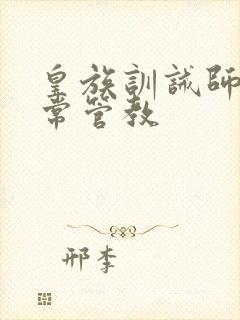 皇族訓誡師
常管教
邢李